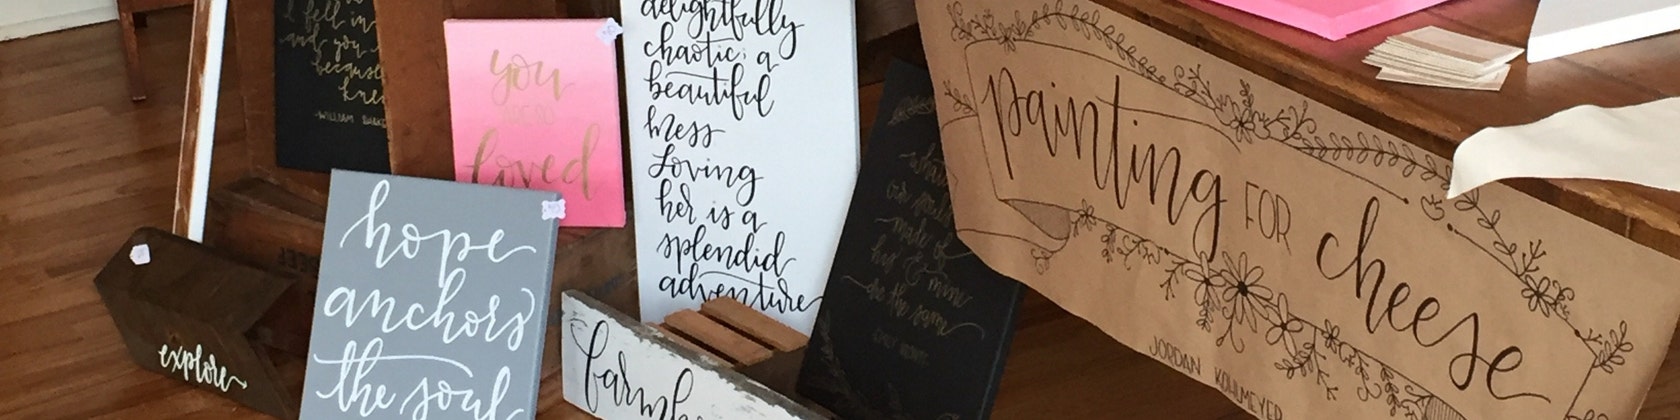 i fell in
and you
because
knew
-WILLIAM
you
were
loved
delightfully
chaotic; a
beautiful
mess
Loving
her is a
splendid
adventure
hope
anchors
the soul
explore
our souls
made of
his & mine
are the same
painting FOR cheese
JORDAN KOHLMEYER